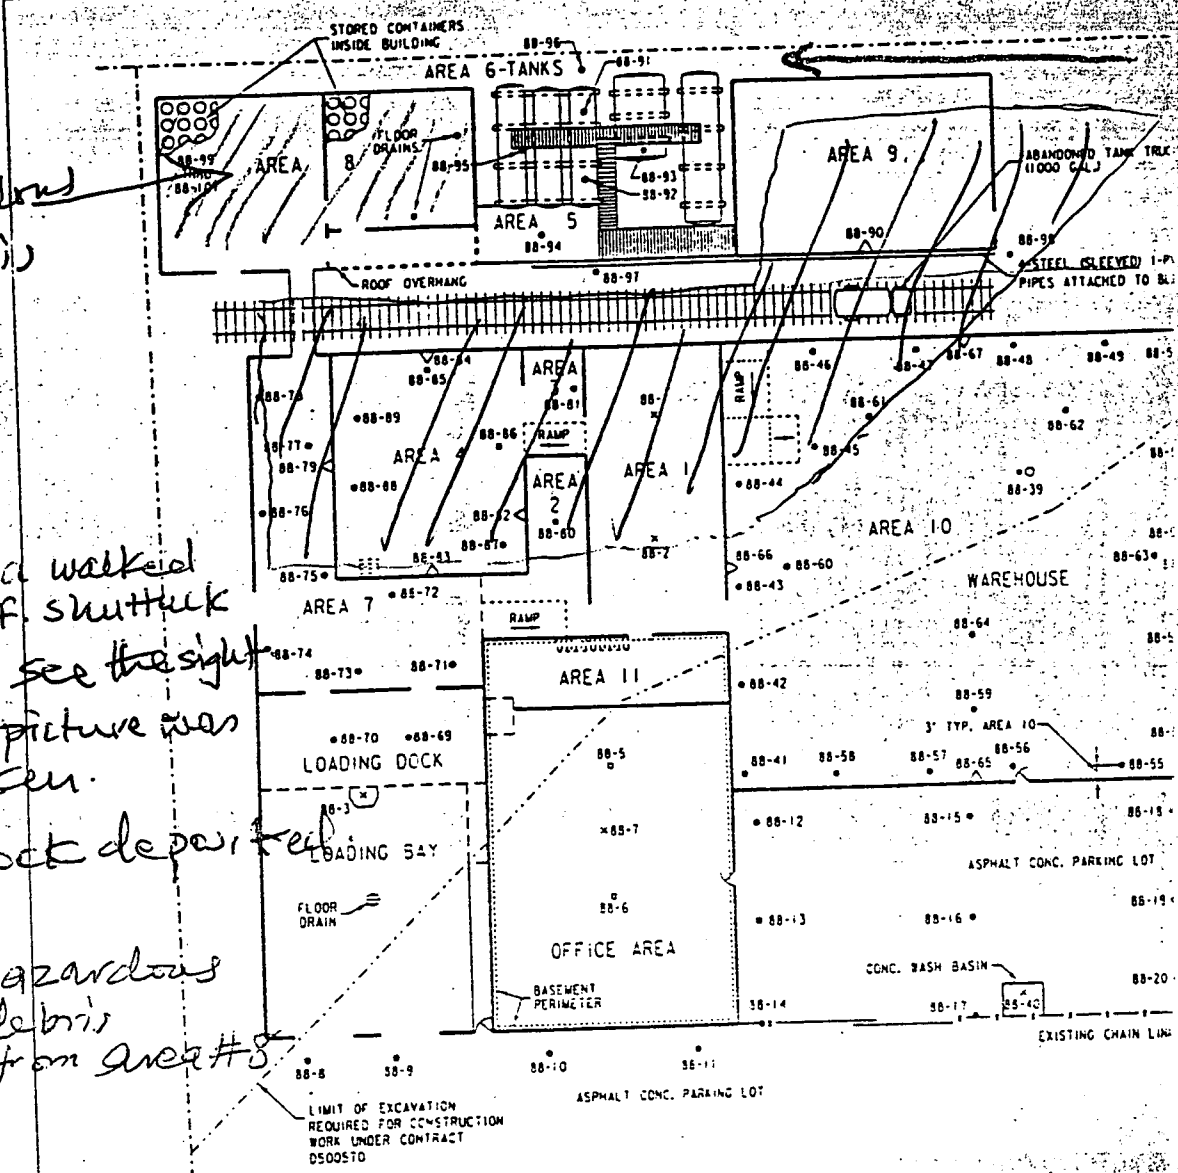 STORED CONTAINERS
INSIDE BUILDING
88-96
88-91
AREA 6-TANKS
FLOOR
DRAINS
88-99
AREA 8
88-95
88-93
88-92
AREA 5
88-94
AREA 9
ABANDONED TANK TRUC
(1000 GAL.)
88-90
88-98
STEEL (SLEEVED)
PIPES ATTACHED TO
ROOF OVERHANG
88-97
88-84
88-85
AREA
88-81
88-
RAMP
88-46
88-47
88-67
88-48
88-49
88-78
88-89
88-61
88-62
88-77
88-86
RAMP
88-45
88-79
AREA 4
AREA 1
88-44
88-88
AREA
2
88-39
88-76
88-82
88-80
AREA 10
88-87
88-83
88-2
88-66
88-60
88-63
88-75
88-43
WAREHOUSE
AREA 7
88-72
RAMP
88-64
88-74
88-73
88-71
AREA 11
88-42
88-59
3' TYP. AREA 10
88-70
88-69
LOADING DOCK
88-5
88-41
88-58
88-57
88-65
88-56
88-55
88-3
88-7
88-12
88-15
88-18
LOADING BAY
ASPHALT CONC. PARKING LOT
FLOOR
DRAIN
88-6
88-13
88-16
88-19
OFFICE AREA
CONC. WASH BASIN
88-20
BASEMENT
PERIMETER
88-14
88-17
88-40
EXISTING CHAIN LIN
88-8
88-9
88-10
88-11
ASPHALT CONC. PARKING LOT
LIMIT OF EXCAVATION
REQUIRED FOR CONSTRUCTION
WORK UNDER CONTRACT
D500570
walked
f. shuttuck
see the sight
picture was
ock departed
azardous
debris
from area #8